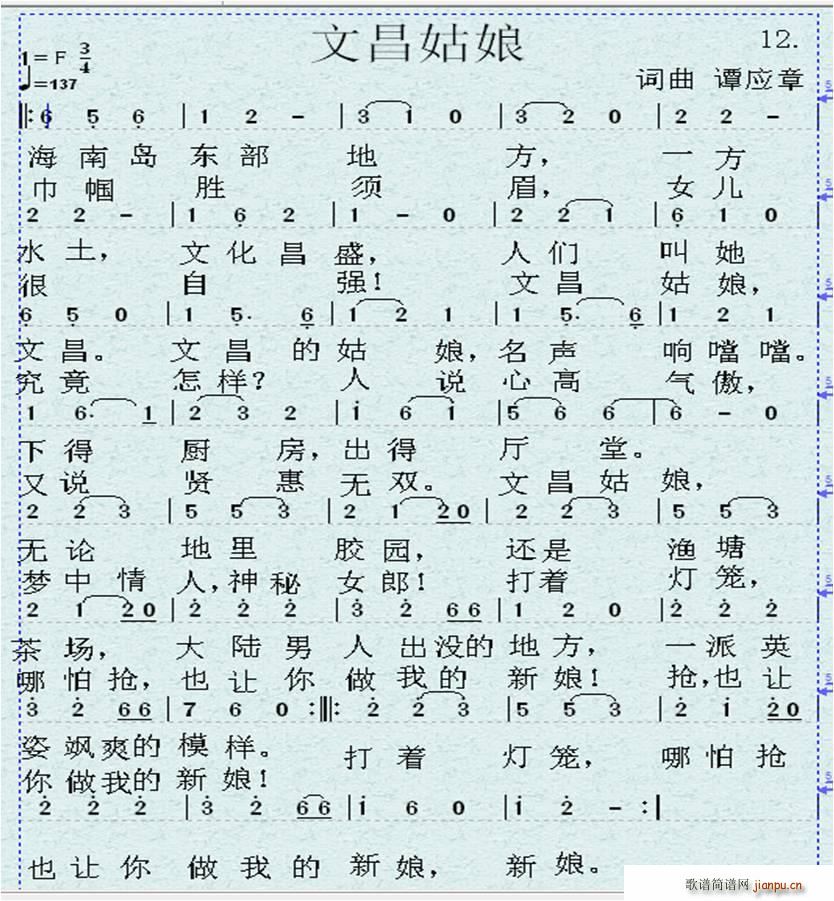 文昌姑娘
12.
1=F 3/4
♩=137
词曲 谭应章
‖: 6 5 6 | 1 2 - | 3 1 0 | 3 2 0 | 2 2 -
海南岛 东部 地 方， 一方
巾帼 胜 须 眉， 女儿
2 2 - | 1 6 2 | 1 - 0 | 2 2 1 | 6 1 0
水土， 文化昌盛， 人们 叫她
很 自 强！ 文昌 姑娘，
6 5 0 | 1 5· 6 | 1 2 1 | 1 5· 6 | 1 2 1
文昌。 文昌 的姑 娘，名声 响噹噹。
究竟 怎样？ 人 说心高 气傲，
1 6· 1 | 2 3 2 | i 6 1 | 5 6 6 | 6 - 0
下得 厨 房，出得 厅 堂。
又说 贤 惠 无双。 文昌姑娘，
2 2 3 | 5 5 3 | 2 1 20 | 2 2 3 | 5 5 3
无论 地里 胶园， 还是 渔塘
梦中情 人，神秘 女郎！ 打着 灯笼，
2 1 20 | 2 2 2 | 3 2 66 | 1 2 0 | 2 2 2
茶场， 大陆男 人出没的 地方， 一派英
哪怕抢，也让你 做我的 新娘！ 抢，也让
3 2 66 | 7 6 0 :‖: 2 2 3 | 5 5 3 | 2 i 20
姿飒爽的 模样。 打着 灯笼， 哪怕抢
你做我的 新娘！
2 2 2 | 3 2 66 | i 6 0 | i 2 - :|
也让你 做我的 新娘， 新娘。
歌谱简谱网 jianpu.cn